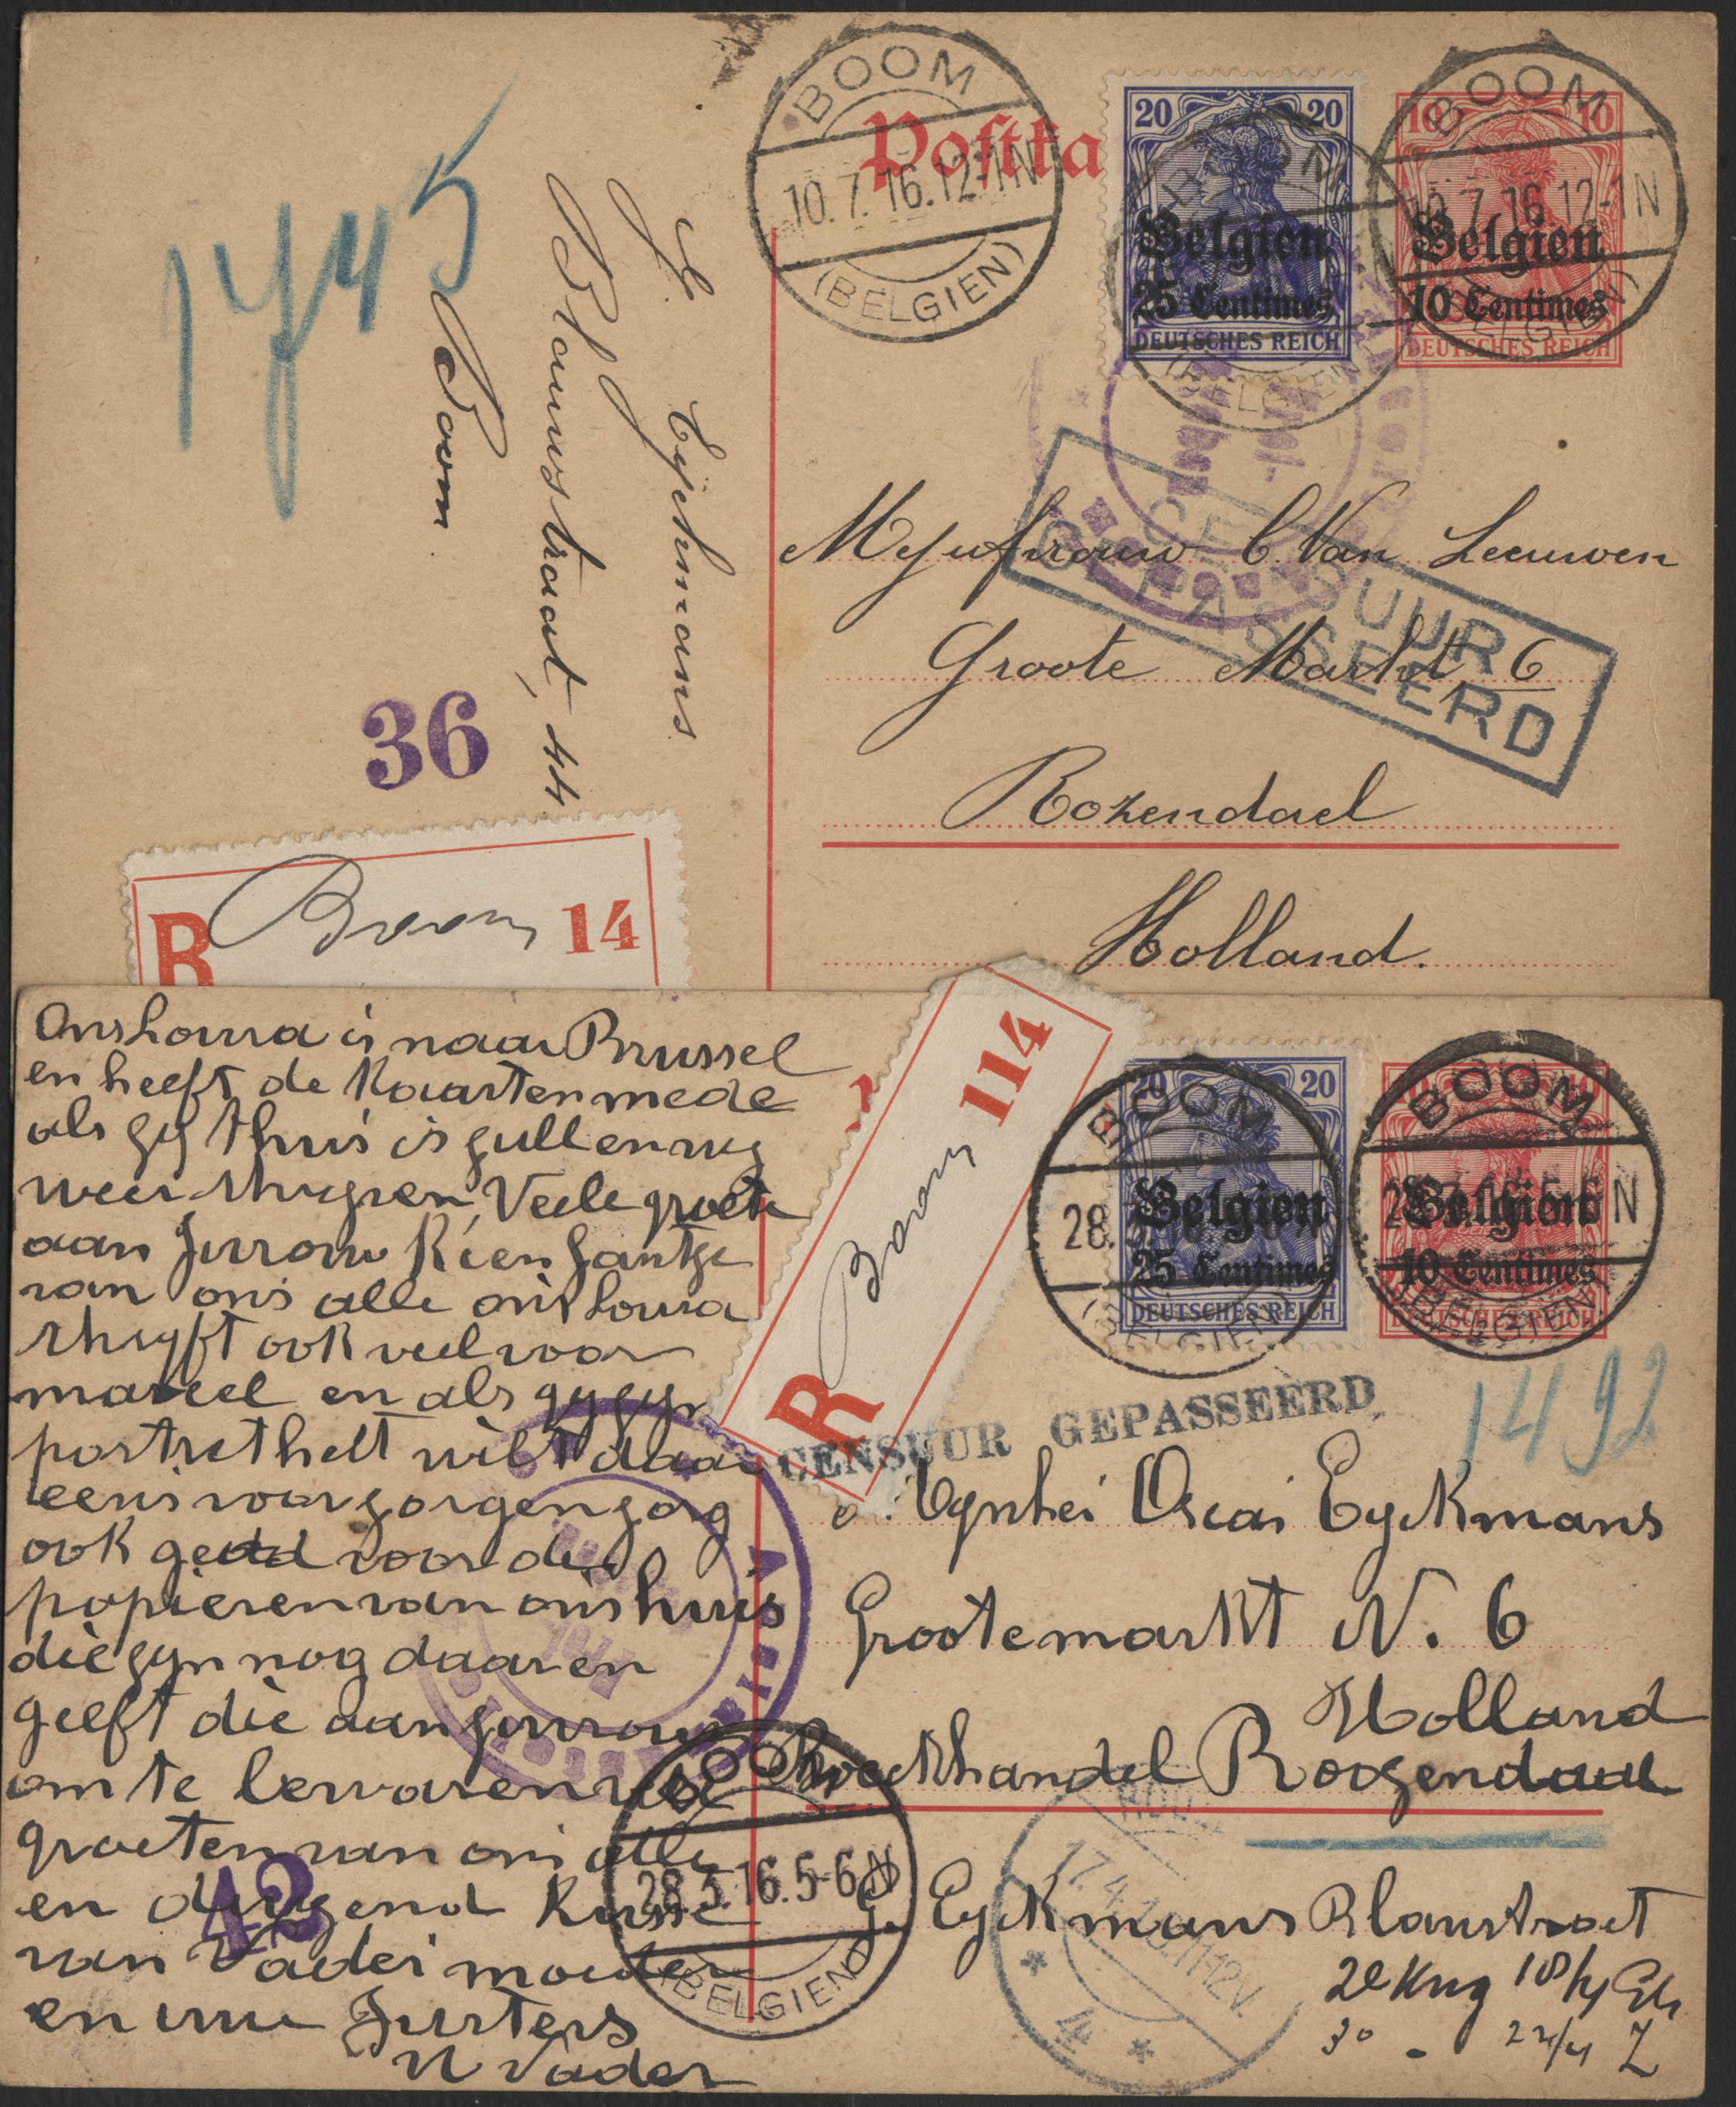 BOOM
10.7.16.12-1N
(BELGIEN)
Postka
20 20
Belgien
25 Centimes
DEUTSCHES REICH
BOOM
(BELGIEN)
10 10
Belgien
10 Centimes
DEUTSCHES REICH
BOOM
10.7.16.12-1N
(BELGIEN)
1745
Eyckmans
Blauwstraat, 44
Boom
36
CENSUUR
GEPASSEERD
Mejufvrouw C. Van Leeuwen
Groote Markt, 6
Rozendael
Holland.
R Boom 14
Ons Louisa is naar Brussel
en heeft de Kaarten mede
als gy thuis is zullen wy
weer schryven, Veele groete
aan Juvrouw Rien Jantje
van ons alle ons Louisa
schryft ook veel voor
marcel en als gy zyn
portret helt wilt daar
eens voor zorgen zorg
ook goed voor die
papieren van ons huis
die zyn nog daar en
geeft die aan Juvrouw
om te bewaren vele
groeten van ons alle
en duyzend Kusse
van Vader moeder
en uwe Zusters
U Vader
42
R Boom 114
20 20
Belgien
25 Centimes
DEUTSCHES REICH
BOOM
28.
(BELGIEN)
Belgien
10 Centimes
DEUTSCHES REICH
BOOM
(BELGIEN)
CENSUUR GEPASSEERD.
1492
Mynher Oscar Eyckmans
Grootemarkt N. 6
Holland
Boekhandel Roozendaal
BOOM
28.3.16.5-6N
(BELGIEN)
J. Eyckmans Blauwstraat
17.4. 11-12V.
* 4 *
2e Kng 18/4
30 - 22/4